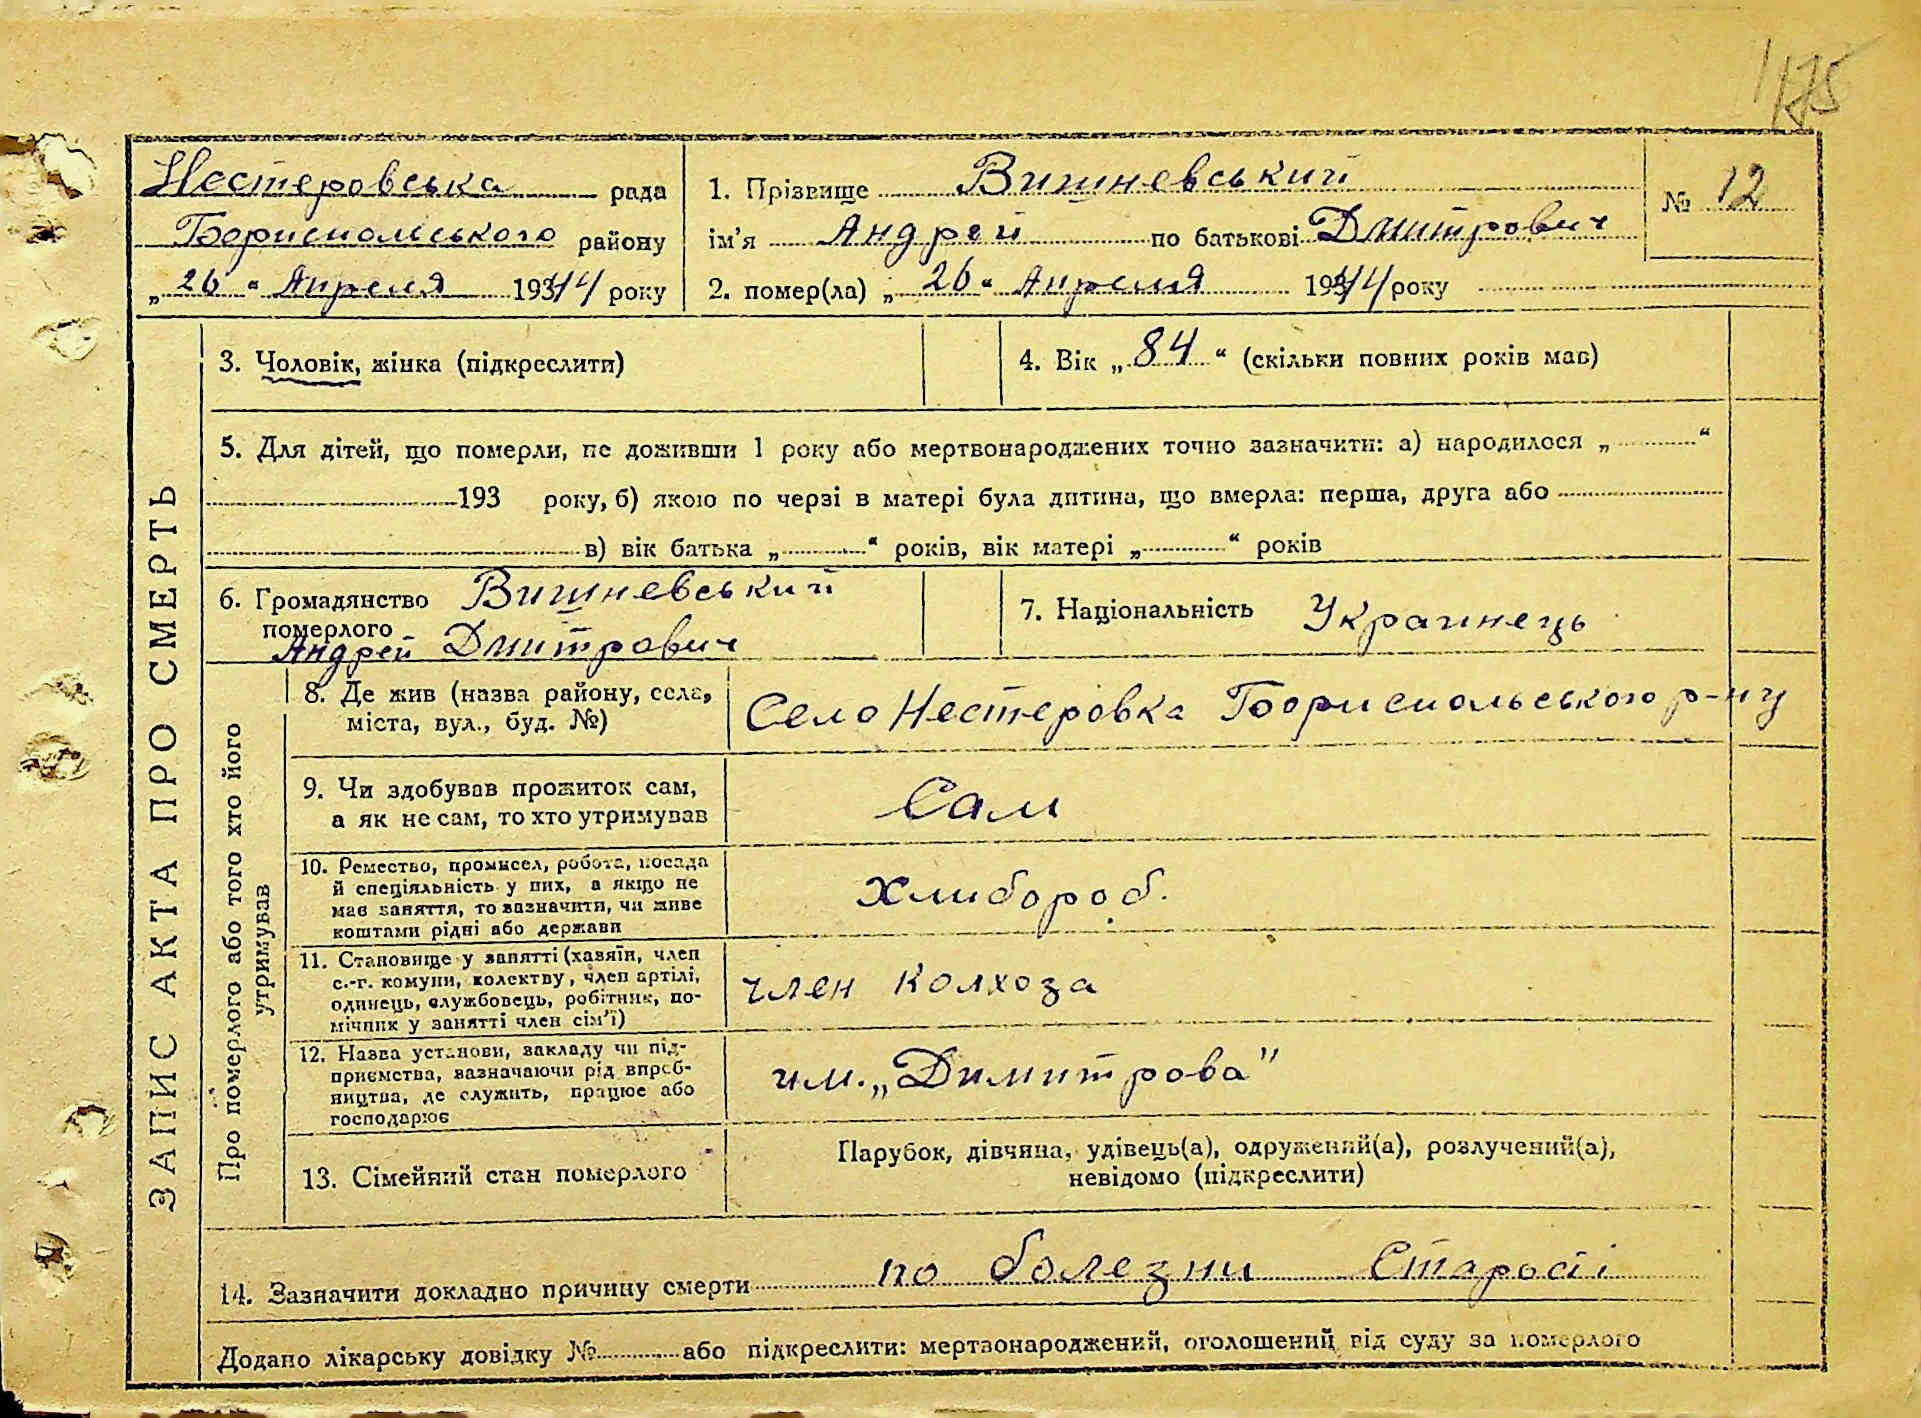 175
Нестеровська рада
Бориспольського району
„ 26 “ Апреля 1944 року
1. Прізвище Вишневський
ім’я Андрей по батькові Дмитрович
2. помер(ла) „ 26 “ Апреля 1944 року
№ 12
ЗАПИС АКТА ПРО СМЕРТЬ
3. Чоловік, жінка (підкреслити)
4. Вік „ 84 “ (скільки повних років мав)
5. Для дітей, що померли, не доживши 1 року або мертвонароджених точно зазначити: а) народилося „ “
193 року, б) якою по черзі в матері була дитина, що вмерла: перша, друга або
в) вік батька „ “ років, вік матері „ “ років
6. Громадянство Вишневський
померлого
Андрей Дмитрович
7. Національність Украинець
Про померлого або того хто його
утримував
8. Де жив (назва району, села,
міста, вул., буд. №)
Село Нестеровка Бориспольського р-ну
9. Чи здобував прожиток сам,
а як не сам, то хто утримував
Сам
10. Ремество, промисел, робота, посада
й спеціяльність у них, а якщо не
має заняття, то зазначити, чи живе
коштами рідні або держави
Хлибороб.
11. Становище у занятті (хазяїн, член
с.-г. комуни, колектву, член артілі,
одинець, службовець, робітник, по-
мічник у занятті член сім’ї)
член колхоза
12. Назва установи, закладу чи під-
приємства, зазначаючи рід вироб-
ництва, де служить, працює або
господарює
им. „Димитрова”
13. Сімейний стан померлого
Парубок, дівчина, удівець(а), одружений(а), розлучений(а),
невідомо (підкреслити)
14. Зазначити докладно причину смерти по болезни Старості
Додано лікарську довідку № або підкреслити: мертвонароджений, оголошений від суду за померлого